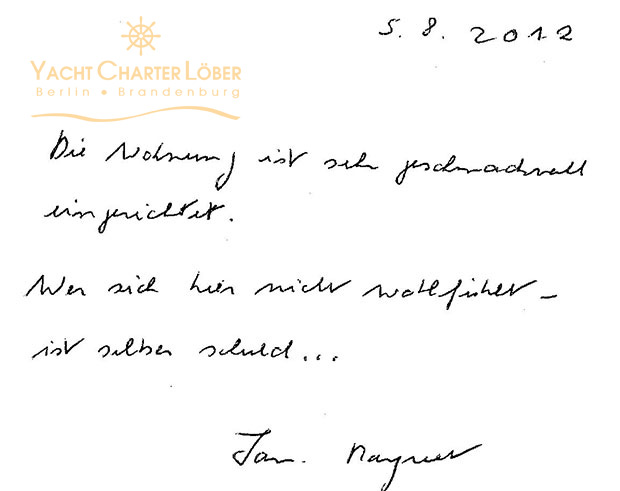 5. 8. 2012
YACHT CHARTER LÖBER
Berlin • Brandenburg
Die Wohnung ist sehr geschmackvoll
eingerichtet.
Wer sich hier nicht wohlfühlt –
ist selber schuld...